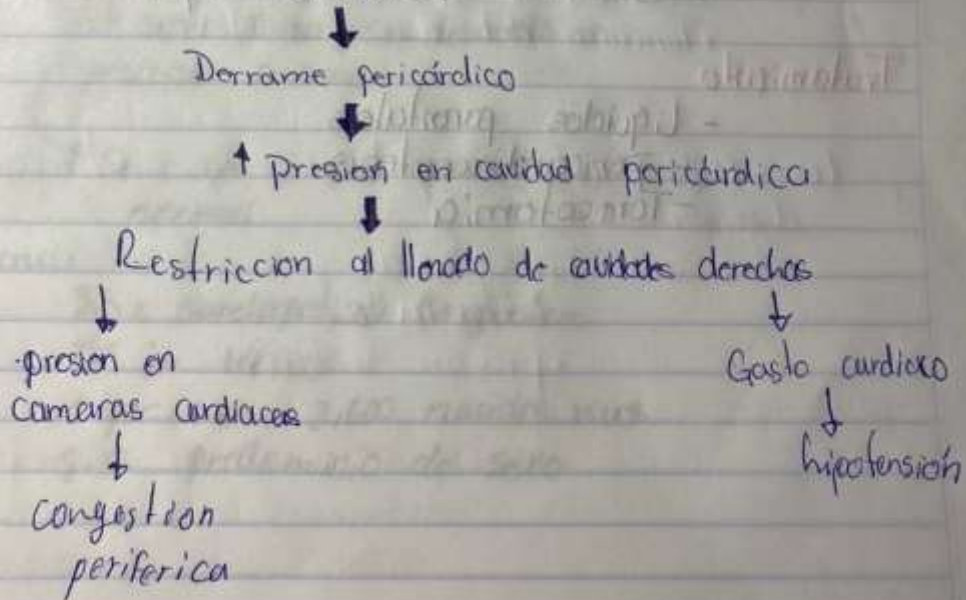 Derrame pericárdico
↑ Presion en cavidad pericárdica
Restriccion al llenado de cavidades derechas
presion en
camaras cardiacas
congestion
periferica
Gasto cardiaco
hipotension